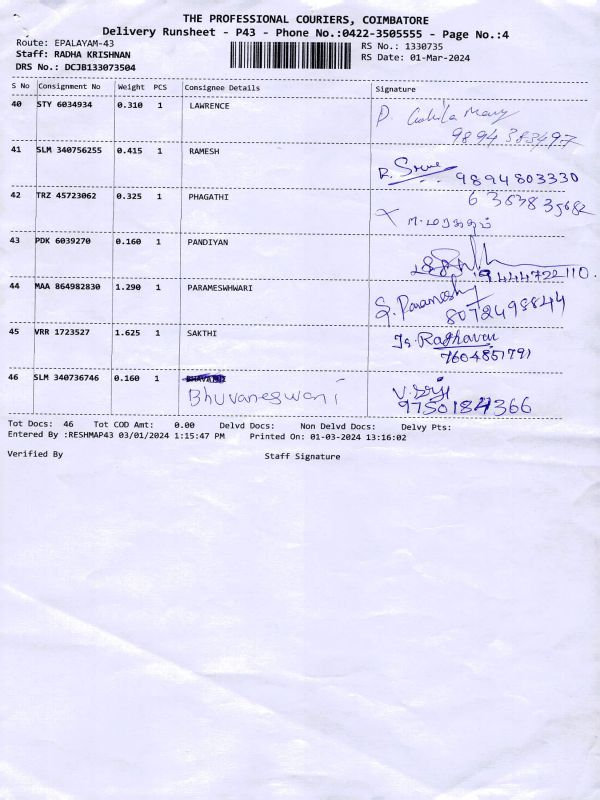 THE PROFESSIONAL COURIERS, COIMBATORE
Delivery Runsheet - P43 - Phone No.:0422-3505555 - Page No.:4
Route: EPALAYAM-43 RS No.: 1330735
Staff: RADHA KRISHNAN RS Date: 01-Mar-2024
DRS No.: DCJB133073504
S No Consignment No Weight PCS Consignee Details Signature
40 STY 6034934 0.310 1 LAWRENCE
41 SLM 340756255 0.415 1 RAMESH
9894803330
42 TRZ 45723062 0.325 1 PHAGATHI
M. மரகதம்
43 PDK 6039270 0.160 1 PANDIYAN
9444722110.
44 MAA 864982830 1.290 1 PARAMESWHWARI
8072498844
45 VRR 1723527 1.625 1 SAKTHI Raghavan
7604851791
46 SLM 340736746 0.160 1
Bhuvaneswari
9750184366
Tot Docs: 46 Tot COD Amt: 0.00 Delvd Docs: Non Delvd Docs: Delvy Pts:
Entered By :RESHMAP43 03/01/2024 1:15:47 PM Printed On: 01-03-2024 13:16:02
Verified By Staff Signature